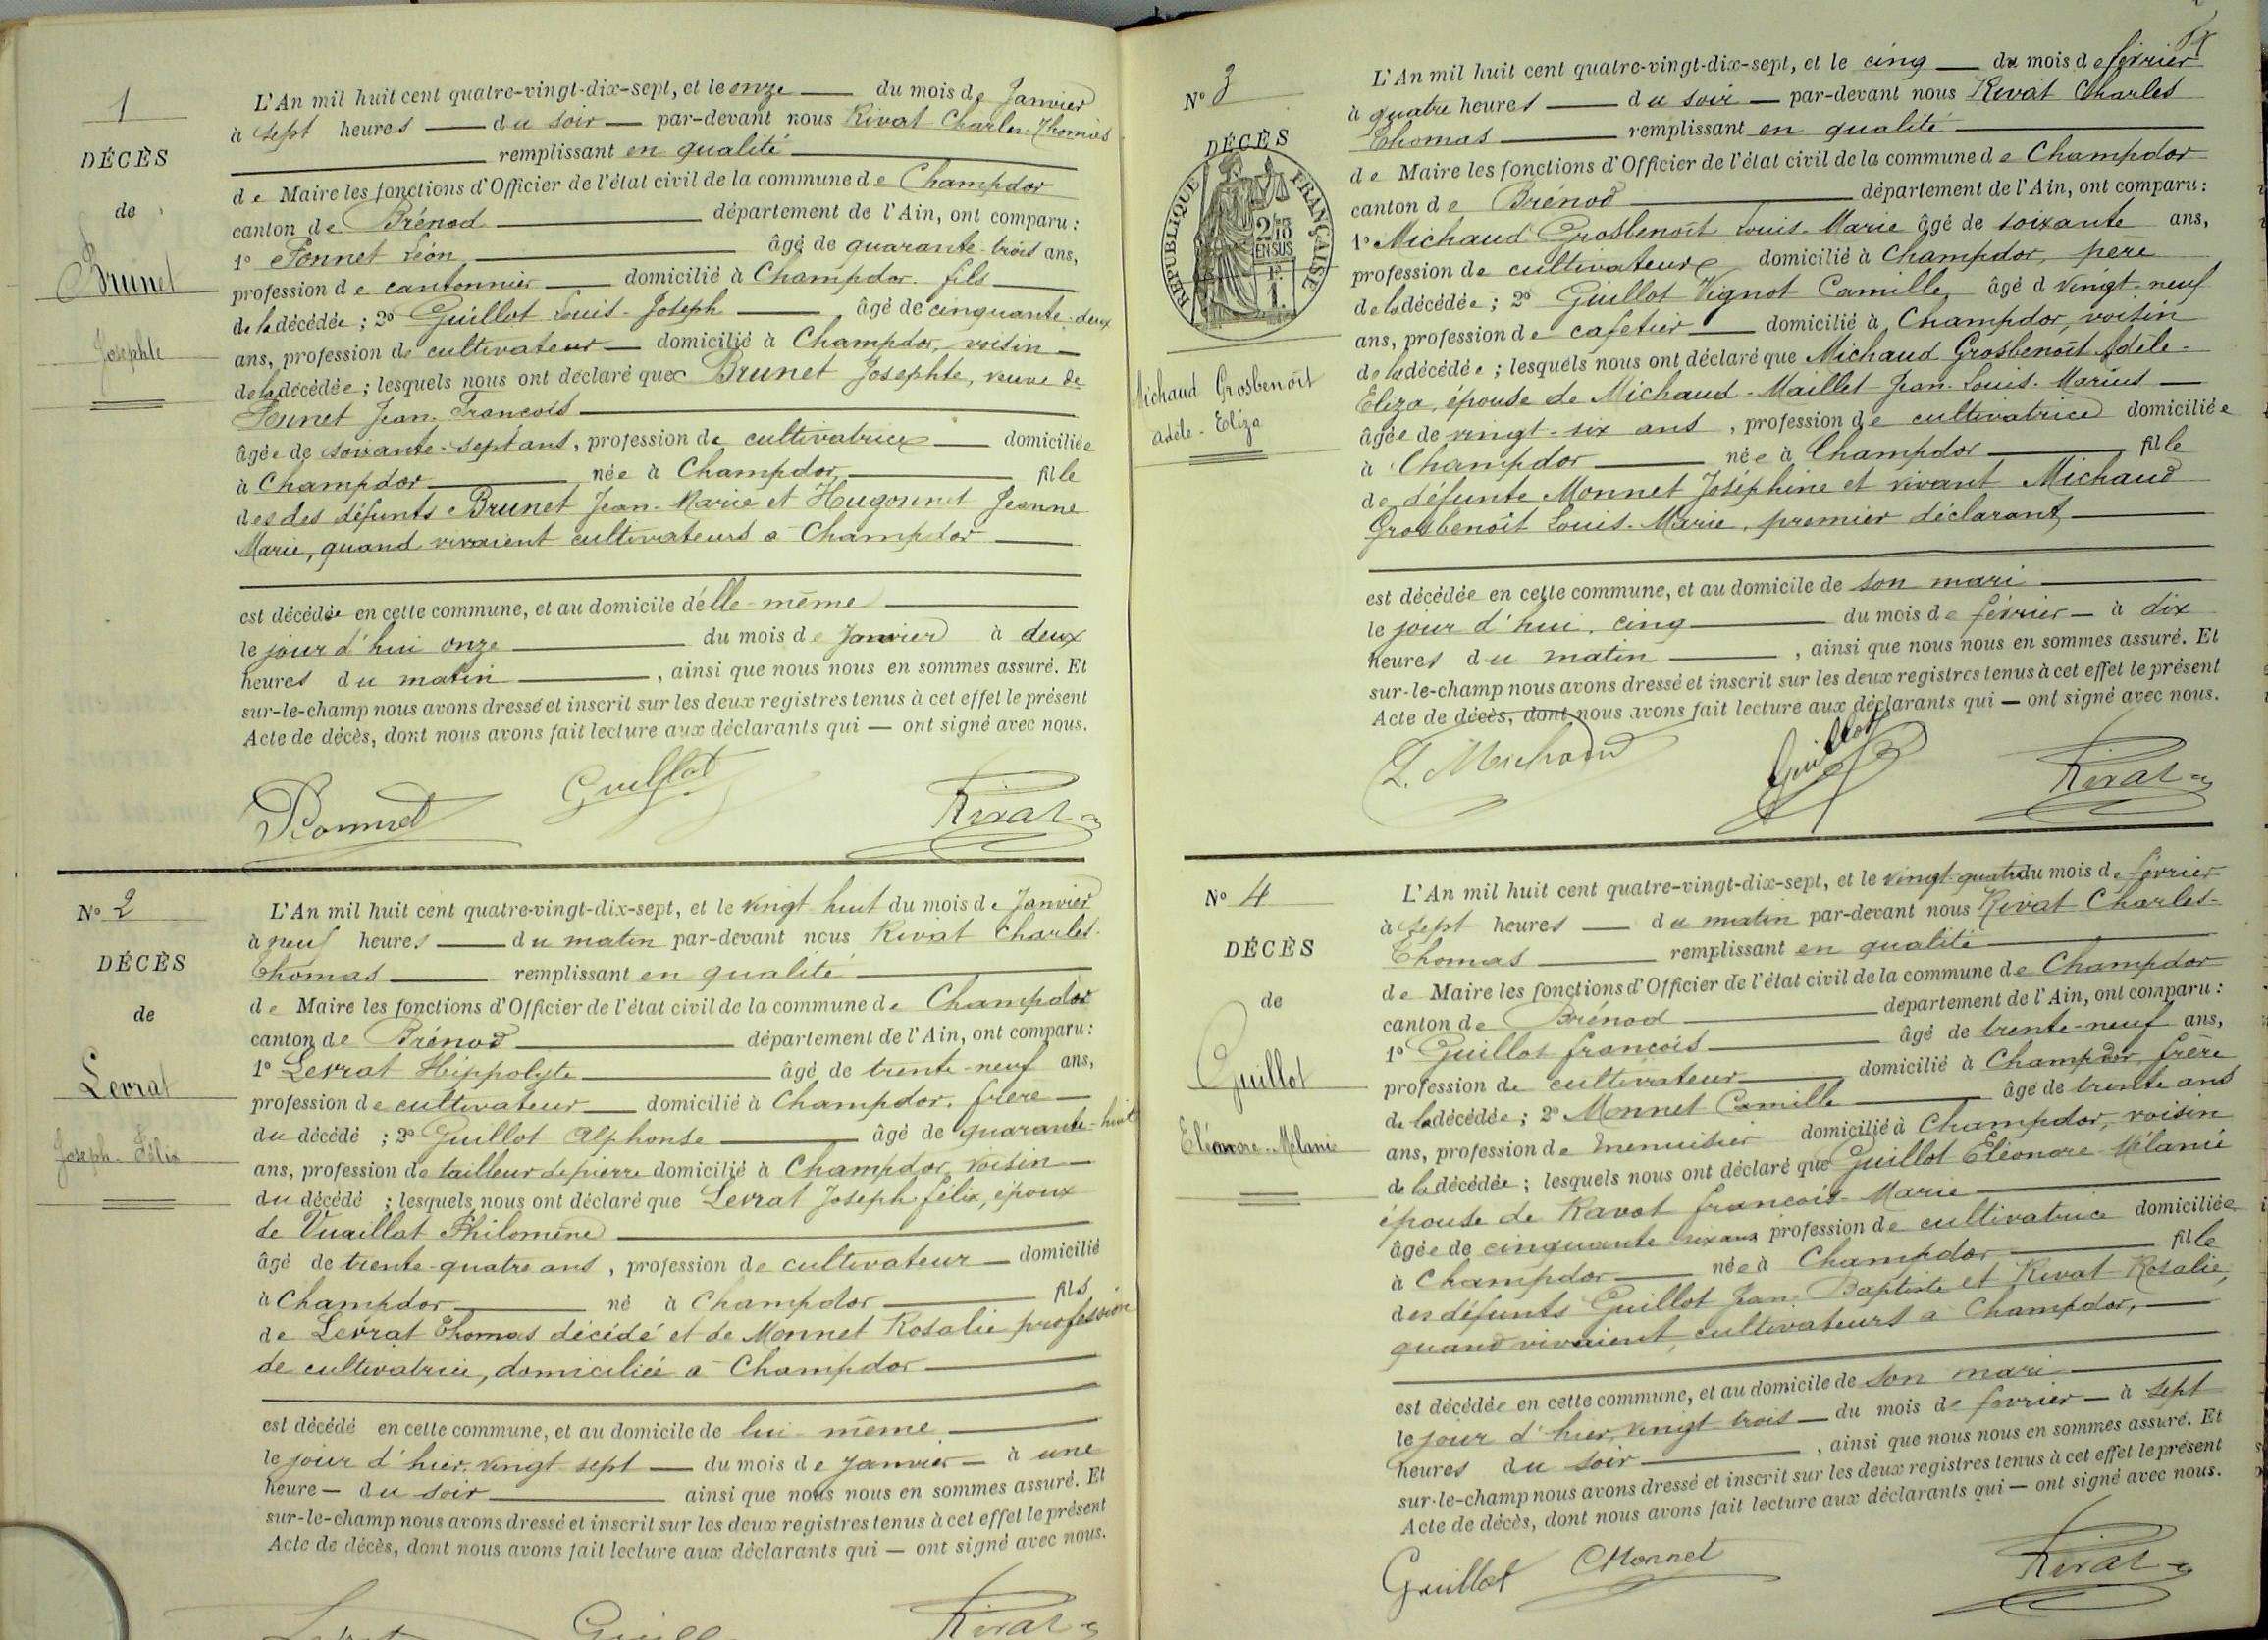 1
DÉCÈS
de
Brunet
Josephte
L'An mil huit cent quatre-vingt-dix-sept, et le onze du mois de Janvier
à sept heures du soir par-devant nous Rivat Charles-Thomas
remplissant en qualité
de Maire les fonctions d'Officier de l'état civil de la commune de Champdor
canton de Brénod département de l'Ain, ont comparu :
1° Ponnet Léon âgé de quarante-trois ans,
profession de cantonnier domicilié à Champdor, fils
de la décédée ; 2° Guillot Louis-Joseph âgé de cinquante-deux
ans, profession de cultivateur domicilié à Champdor, voisin
de la décédée ; lesquels nous ont déclaré que Brunet Josephte, veuve de
Ponnet Jean-François
âgée de soixante-sept ans, profession de cultivatrice domiciliée
à Champdor née à Champdor fille
des des défunts Brunet Jean-Marie et Hugonnet Jeanne
Marie, quand vivaient cultivateurs à Champdor
est décédée en cette commune, et au domicile d'elle-même
le jour d'hui onze du mois de Janvier à deux
heures du matin, ainsi que nous nous en sommes assuré. Et
sur-le-champ nous avons dressé et inscrit sur les deux registres tenus à cet effet le présent
Acte de décès, dont nous avons fait lecture aux déclarants qui — ont signé avec nous.
Ponnet Guillot Rivat
N° 2
DÉCÈS
de
Levrat
Joseph-Félix
L'An mil huit cent quatre-vingt-dix-sept, et le vingt huit du mois de Janvier
à neuf heures du matin par-devant nous Rivat Charles-
Thomas remplissant en qualité
de Maire les fonctions d'Officier de l'état civil de la commune de Champdor
canton de Brénod département de l'Ain, ont comparu :
1° Levrat Hippolyte âgé de trente-neuf ans,
profession de cultivateur domicilié à Champdor, frère
du décédé ; 2° Guillot Alphonse âgé de quarante-huit
ans, profession de tailleur de pierre domicilié à Champdor, voisin
du décédé ; lesquels nous ont déclaré que Levrat Joseph félix, époux
de Vuaillat Philomène
âgé de trente-quatre ans, profession de cultivateur domicilié
à Champdor né à Champdor fils
de Levrat Thomas décédé et de Monnet Rosalie profession
de cultivatrice, domiciliée à Champdor
est décédé en cette commune, et au domicile de lui-même
le jour d'hier, vingt sept du mois de janvier à une
heure du soir ainsi que nous nous en sommes assuré. Et
sur-le-champ nous avons dressé et inscrit sur les deux registres tenus à cet effet le présent
Acte de décès, dont nous avons fait lecture aux déclarants qui — ont signé avec nous.
Rivat
N° 3
DÉCÈS
RÉPUBLIQUE FRANÇAISE
2/10
EN SUS
1F.
Michaud Grosbenoit
Adèle-Eliza
L'An mil huit cent quatre-vingt-dix-sept, et le cinq du mois de février
à quatre heures du soir par-devant nous Rivat Charles
Thomas remplissant en qualité
de Maire les fonctions d'Officier de l'état civil de la commune de Champdor
canton de Brénod département de l'Ain, ont comparu :
1° Michaud Grosbenoit Louis-Marie âgé de soixante ans,
profession de cultivateur domicilié à Champdor, père
de la décédée ; 2° Guillot Vignot Camille, âgé d vingt-neuf
ans, profession de cafetier domicilié à Champdor, voisin
de la décédée ; lesquels nous ont déclaré que Michaud Grosbenoit Adèle-
Eliza, épouse de Michaud-Maillet Jean-Louis-Marius
âgée de vingt-six ans, profession de cultivatrice domiciliée
à Champdor née à Champdor fille
de défunte Monnet Joséphine et vivant Michaud
Grosbenoit Louis-Marie, premier déclarant
est décédée en cette commune, et au domicile de son mari
le jour d'hui, cinq du mois de février à dix
heures du matin, ainsi que nous nous en sommes assuré. Et
sur-le-champ nous avons dressé et inscrit sur les deux registres tenus à cet effet le présent
Acte de décès, dont nous avons fait lecture aux déclarants qui — ont signé avec nous.
L. Michaud Guillot Rivat
N° 4
DÉCÈS
de
Guillot
Eléonore-Mélanie
L'An mil huit cent quatre-vingt-dix-sept, et le vingt-quatre du mois de février
à sept heures du matin par-devant nous Rivat Charles-
Thomas remplissant en qualité
de Maire les fonctions d'Officier de l'état civil de la commune de Champdor
canton de Brénod département de l'Ain, ont comparu :
1° Guillot françois âgé de trente-neuf ans,
profession de cultivateur domicilié à Champdor, frère
de la décédée ; 2° Monnet Camille âgé de trente ans
ans, profession de menuisier domicilié à Champdor, voisin
de la décédée ; lesquels nous ont déclaré que Guillot Eléonore-Mélanie
épouse de Ravot françois-Marie
âgée de cinquante-six ans profession de cultivatrice domiciliée
à Champdor née à Champdor fille
des défunts Guillot Jean-Baptiste et Rivat Rosalie,
quand vivaient, cultivateurs à Champdor,
est décédée en cette commune, et au domicile de son mari
le jour d'hier, vingt-trois du mois de fevrier à sept
heures du soir, ainsi que nous nous en sommes assuré. Et
sur-le-champ nous avons dressé et inscrit sur les deux registres tenus à cet effet le présent
Acte de décès, dont nous avons fait lecture aux déclarants qui — ont signé avec nous.
Guillot CMonnet Rivat